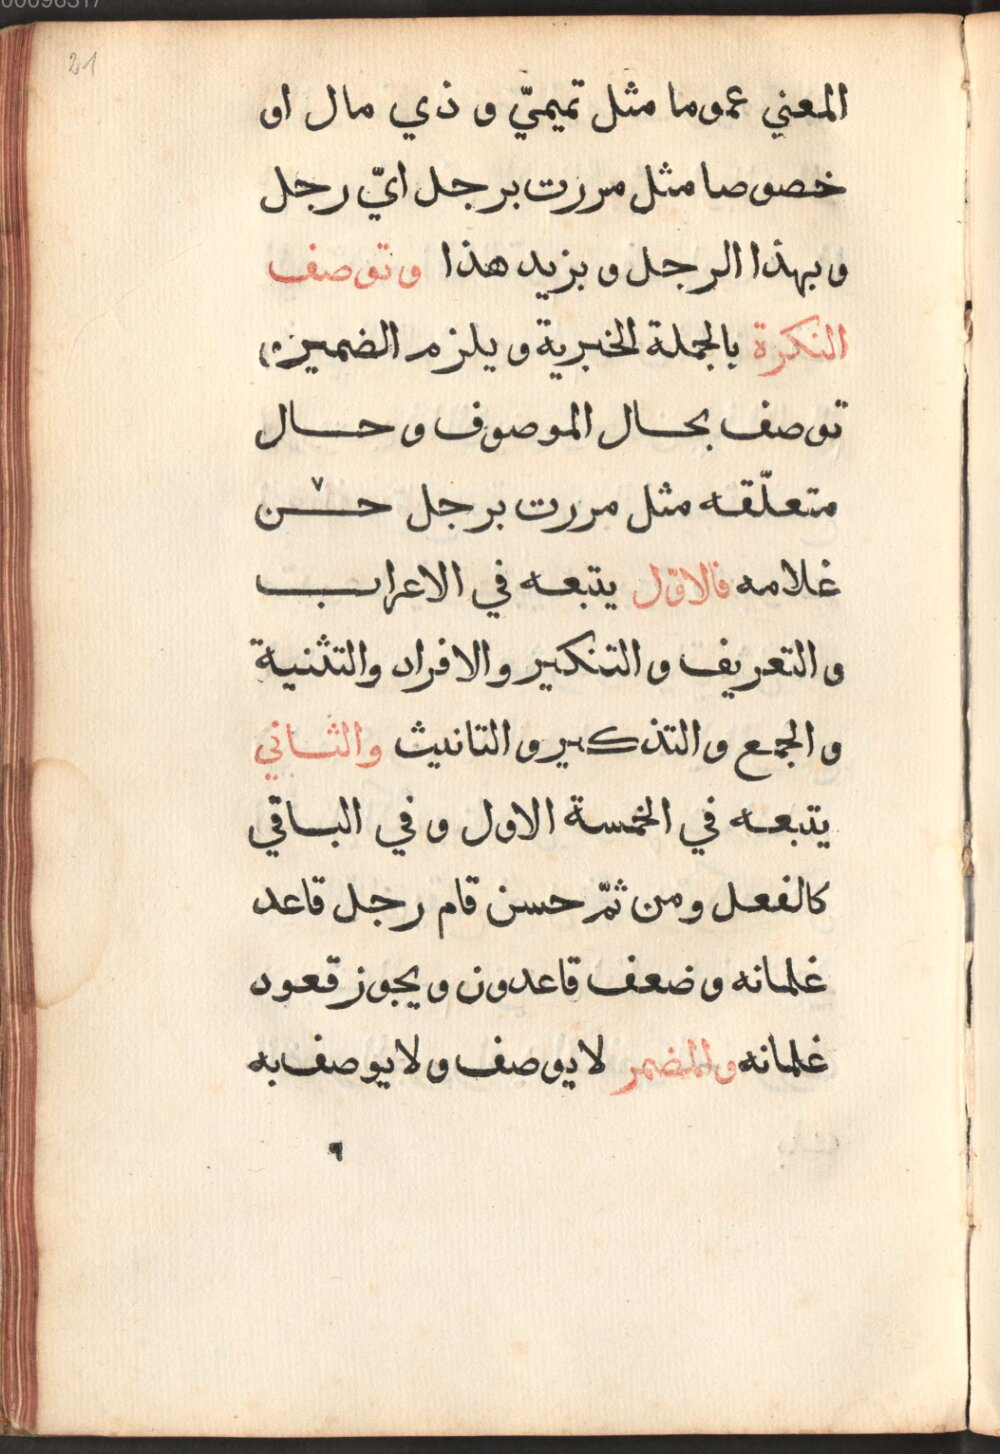 00096317
21
المعني عموما مثل تميميّ و ذي مال او
خصوصا مثل مررت برجل ايّ رجل
و بهذا الرجل و بزيد هذا و توصف
النكرة بالجملة الخبرية و يلزم الضمير
توصف بحال الموصوف و حال
متعلّقه مثل مررت برجل حسن
غلامه فالاوّل يتبعه في الاعراب
و التعريف و التنكير و الافراد والتثنية
و الجمع و التذكير و التانيث والثاني
يتبعه في الخمسة الاول و في الباقي
كالفعل و من ثمّ حسن قام رجل قاعد
غلمانه و ضعف قاعدون و يجوز قعود
غلمانه و المضمر لا يوصف و لا يوصف به
٩